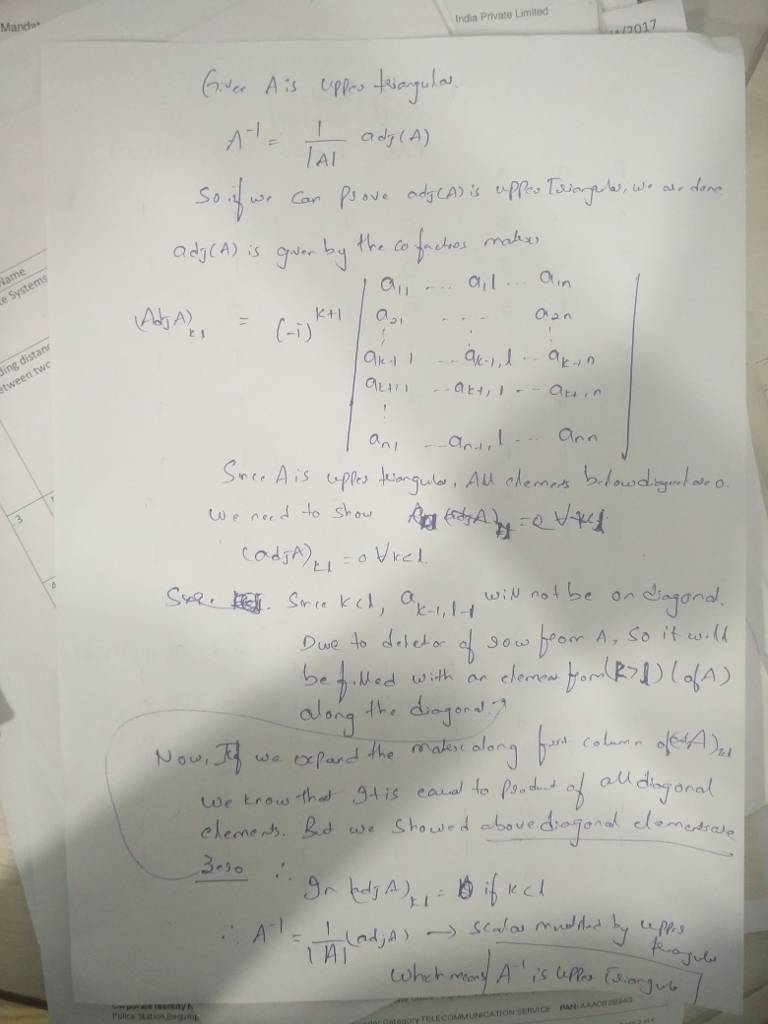 India Private Limited
Mandat
/2017
Given A is upper triangular.
A^-1 = 1/|A| adj(A)
So if we can prove adj(A) is upper Triangular, we are done
adj(A) is given by the cofactors matrix
(Adj A)_kl = (-1)^k+l | a11 ... a1l ... a1n
a21 ... a2n
ak-1 1 ... ak-1, l ... ak-1 n
ak+1 1 ... ak+1, l ... ak+1, n
an1 ... an-1, l ... ann |
Since A is upper triangular, All elements below diagonal are 0.
We need to show
(adj A)_kl = 0 ∀ k<l.
Since k<l, a_k-1,l-1 will not be on diagonal.
Due to deletion of row from A, so it will
be filled with an element from (k>l) (of A)
along the diagonal.
Now, If we expand the matrix along first column of (adj A)_kl
we know that It is equal to product of all diagonal
elements. But we showed above diagonal elements are
Zero ∴ In (adj A)_kl = 0 if k<l
∴ A^-1 = 1/|A| (adj A) → scalar multiplied by upper
triangular
which means A^-1 is upper Triangular
Name
e Systems
ding distan
etween two
3
Corporate Identity N
Police Station, Begump
Category TELECOMMUNICATION SERVICE PAN: